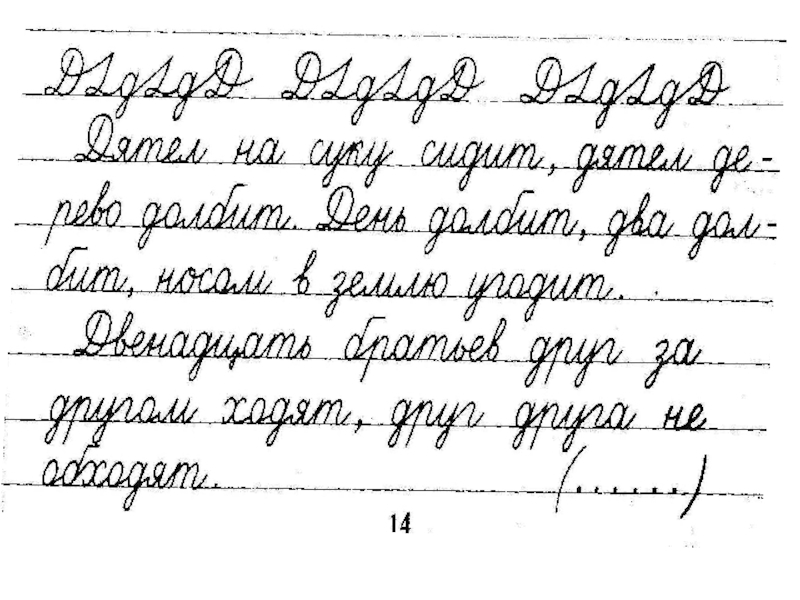 DLgLgD DLgLgD DLgLgD
Дятел на суку сидит, дятел де-
рево долбит. День долбит, два дол-
бит, носом в землю угодит.
Двенадцать братьев друг за
другом ходят, друг друга не
обходят. (......)
14